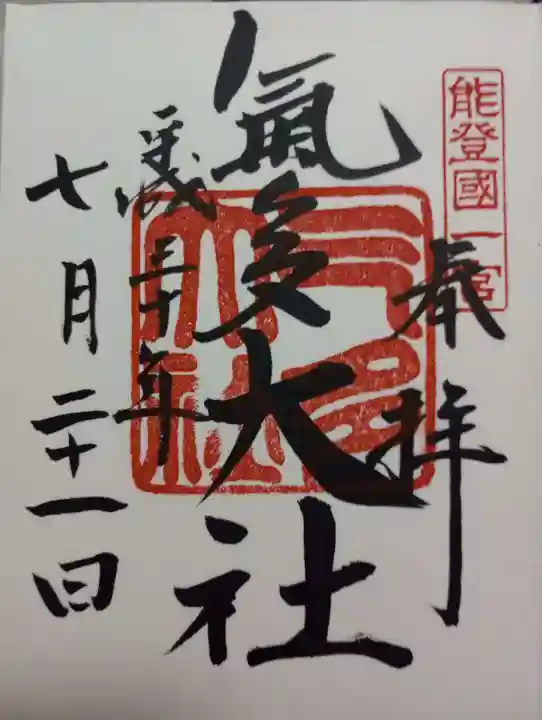 能登國一宮
奉拝
氣多大社
平成三十年
七月二十一日
氣多大社